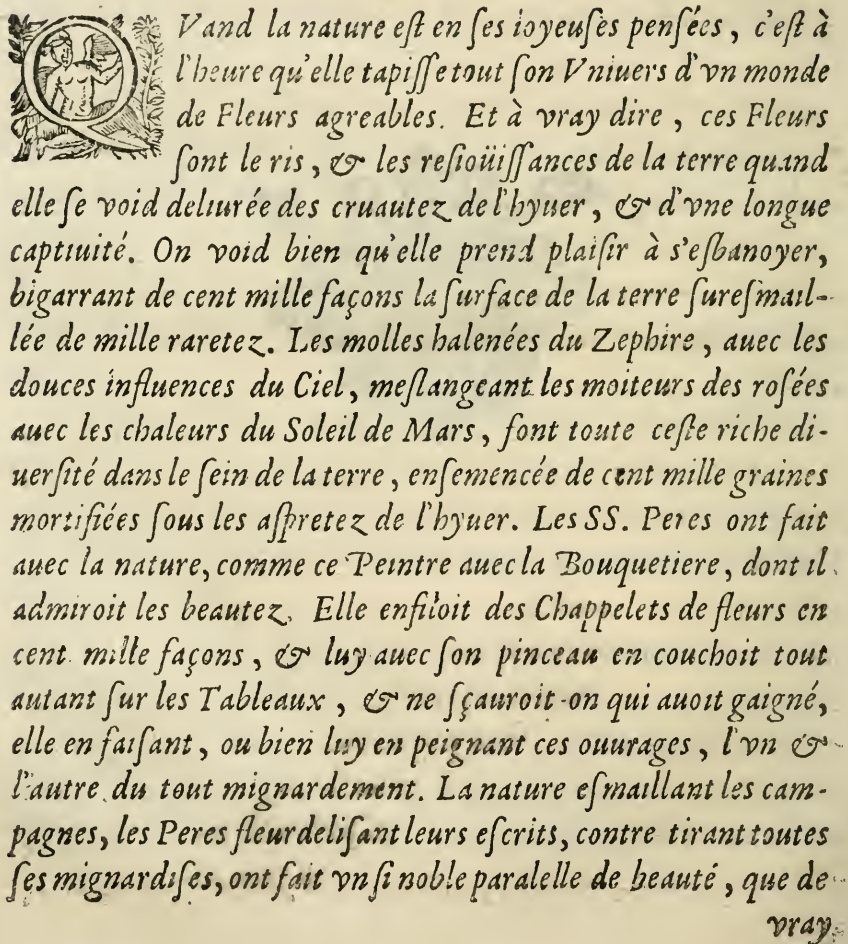 QVand la nature eſt en ſes ioyeuſes penſées, c'eſt à
l'heure qu'elle tapiſſe tout ſon Vniuers d'vn monde
de Fleurs agreables. Et à vray dire, ces Fleurs
ſont le ris, & les reſioüiſſances de la terre quand
elle ſe void deliurée des cruautez de l'hyuer, & d'vne longue
captiuité. On void bien qu'elle prend plaiſir à s'eſbanoyer,
bigarrant de cent mille façons la ſurface de la terre ſureſmail-
lée de mille raretez. Les molles halenées du Zephire, auec les
douces influences du Ciel, meſlangeant les moiteurs des roſées
auec les chaleurs du Soleil de Mars, font toute ceſte riche di-
uerſité dans le ſein de la terre, enſemencée de cent mille graines
mortifiées ſous les aſpretez de l'hyuer. Les SS. Peres ont fait
auec la nature, comme ce Peintre auec la Bouquetiere, dont il
admiroit les beautez. Elle enfiloit des Chappelets de fleurs en
cent mille façons, & luy auec ſon pinceau en couchoit tout
autant ſur les Tableaux, & ne ſçauroit-on qui auoit gaigné,
elle en faiſant, ou bien luy en peignant ces ouurages, l'vn &
l'autre du tout mignardement. La nature eſmaillant les cam-
pagnes, les Peres fleurdeliſant leurs eſcrits, contre tirant toutes
ſes mignardiſes, ont fait vn ſi noble paralelle de beauté, que de
vray